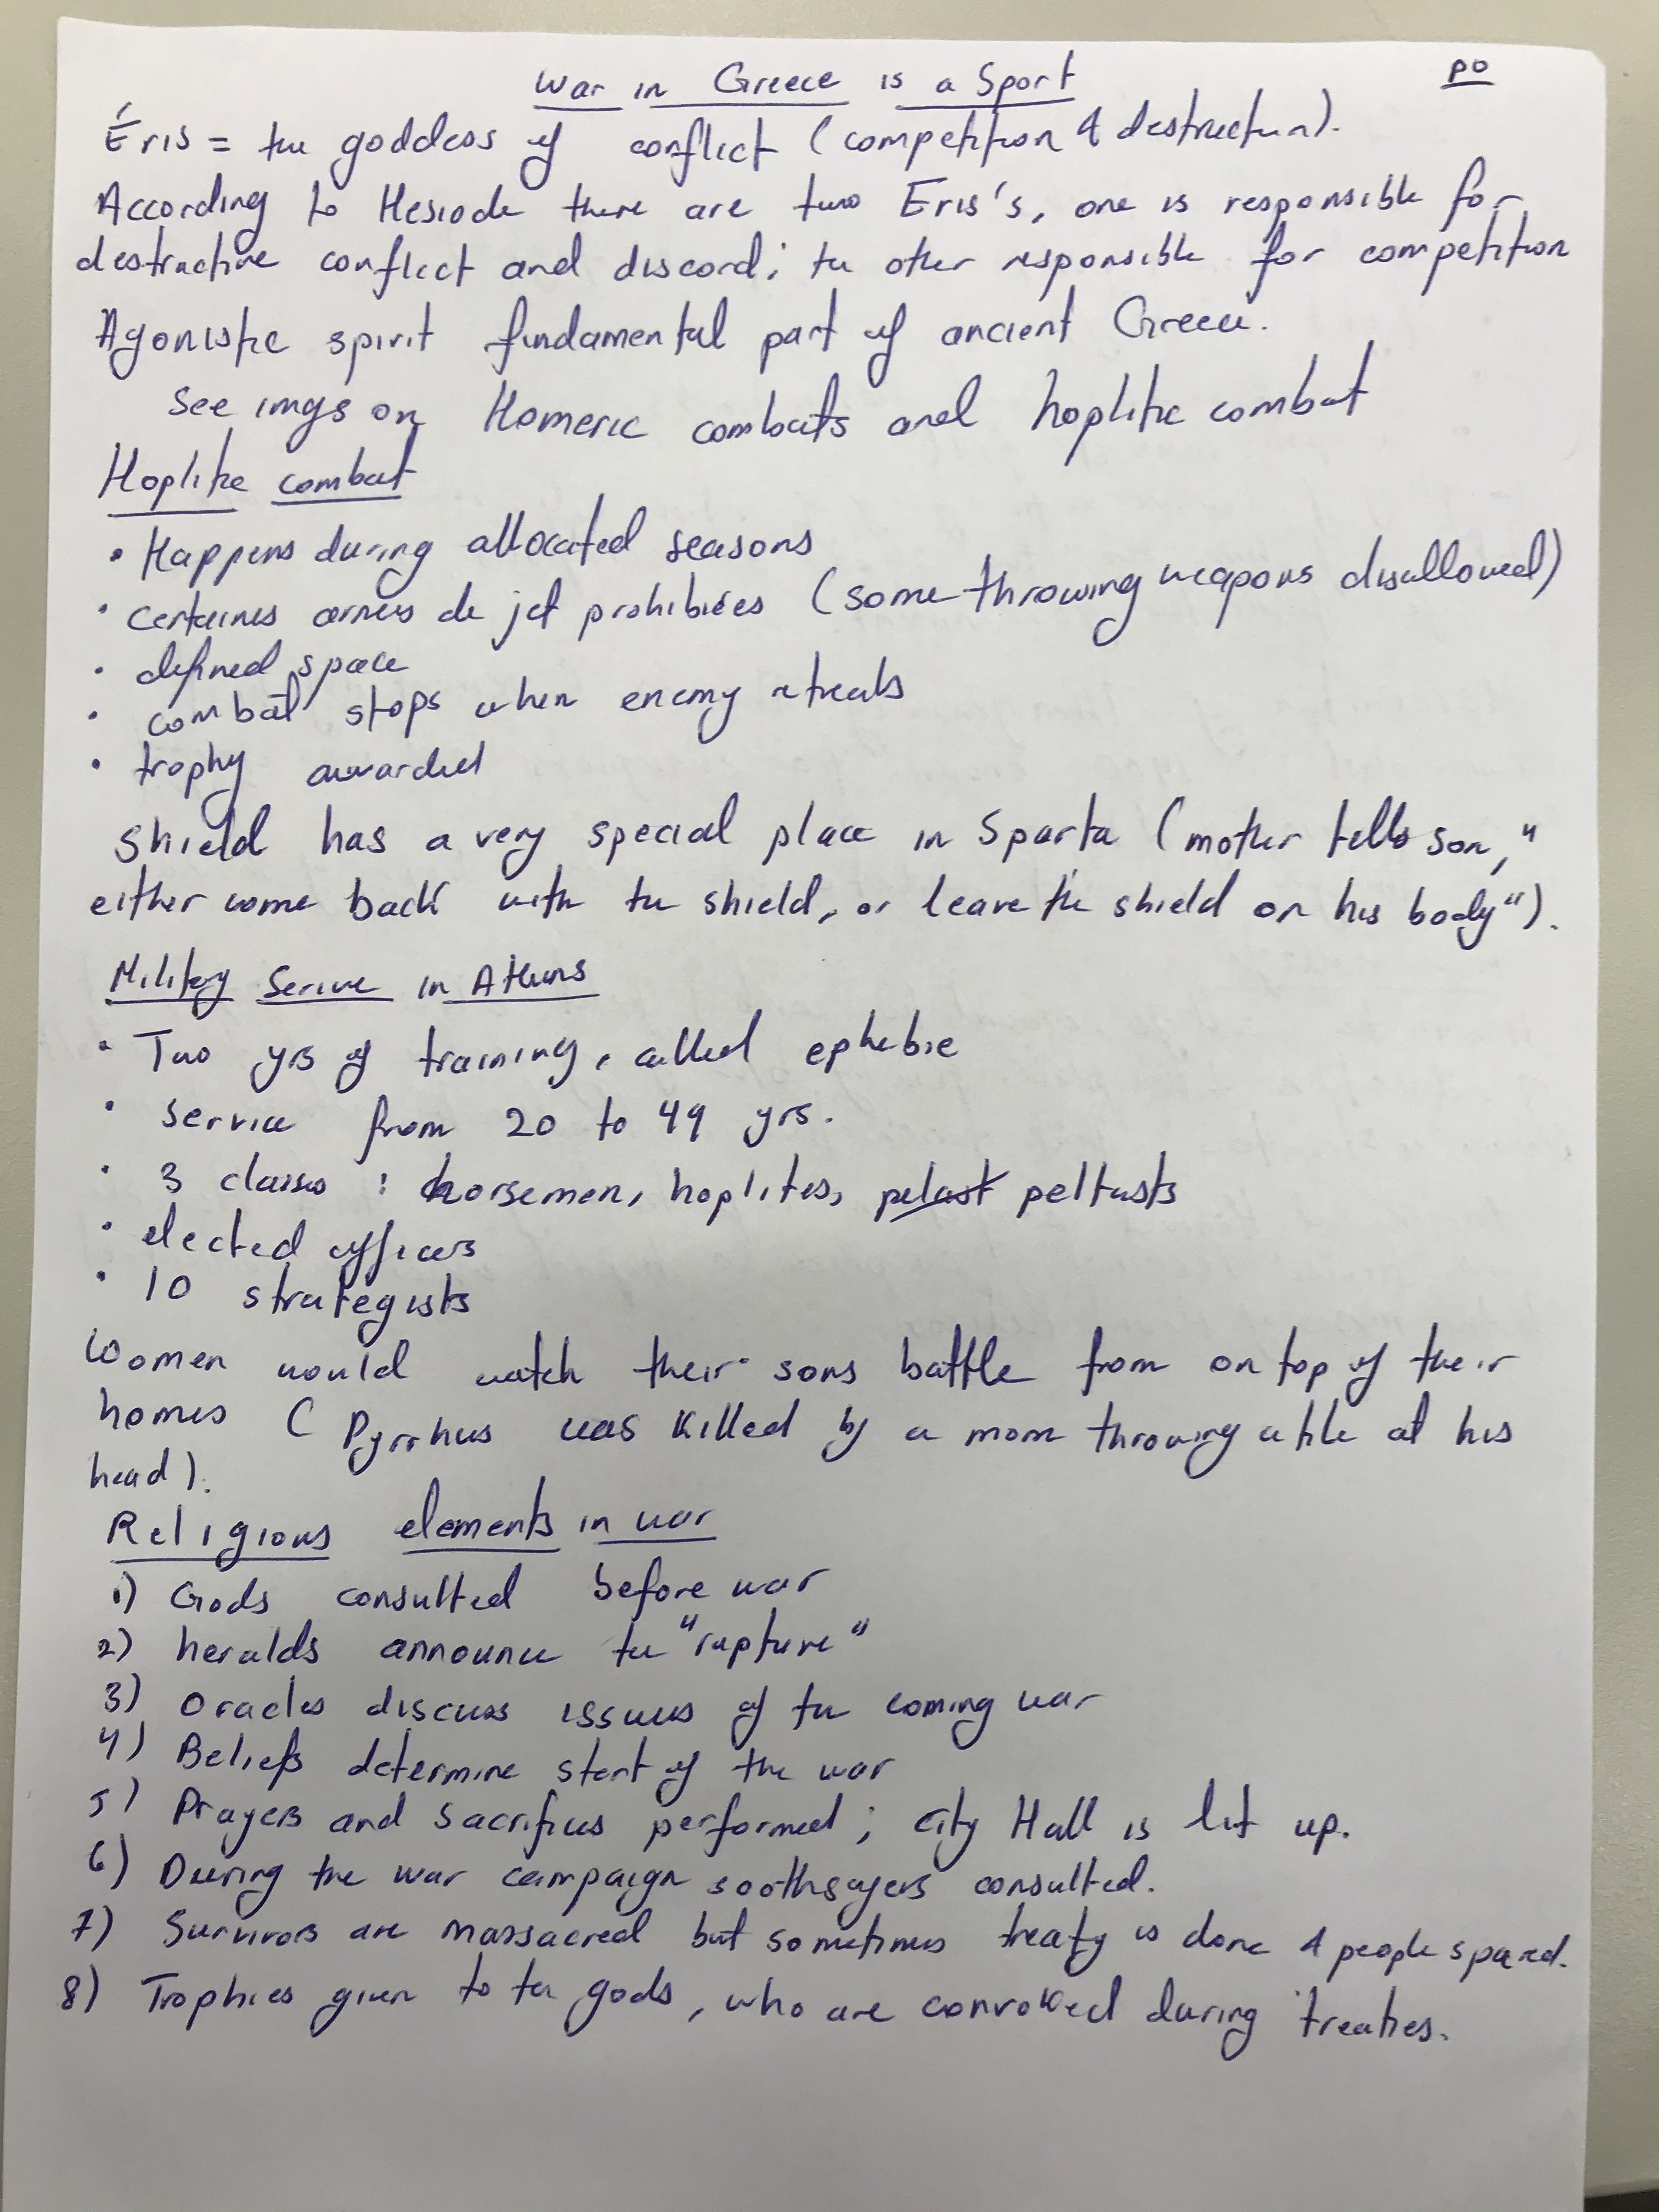 War in Greece is a Sport
p0
Éris = the goddess of conflict (competition & destruction).
According to Hesiode there are two Eris's, one is responsible for
destructive conflict and discord; the other responsible for competition
Agonistic spirit fundamental part of ancient Greece.
See imgs on Homeric combats and hoplite combat
Hoplite combat
• Happens during allocated seasons
• certaines armes de jet prohibiées (some throwing weapons disallowed)
• defined space
• combat stops when enemy retreats
• trophy awarded
Shield has a very special place in Sparta (mother tells son, "
either come back with the shield, or leave the shield on his body").
Military Serive in Athens
• Two yrs of training, called ephebie
• service from 20 to 49 yrs.
• 3 classes : horsemen, hoplites, pelast peltasts
• elected officers
• 10 strategists
Women would watch their sons battle from on top of their
homes ( Pyrrhus was killed by a mom throwing a tile at his
head).
Religious elements in war
1) Gods consulted before war
2) heralds announce the "rupture"
3) Oracles discuss issues of the coming war
4) Beliefs determine start of the war
5) Prayers and sacrifices performed; city Hall is lit up.
6) During the war campaign soothsayers consulted.
7) Survivors are massacred but sometimes treaty is done & people spared.
8) Trophies given to the gods, who are convoked during treaties.